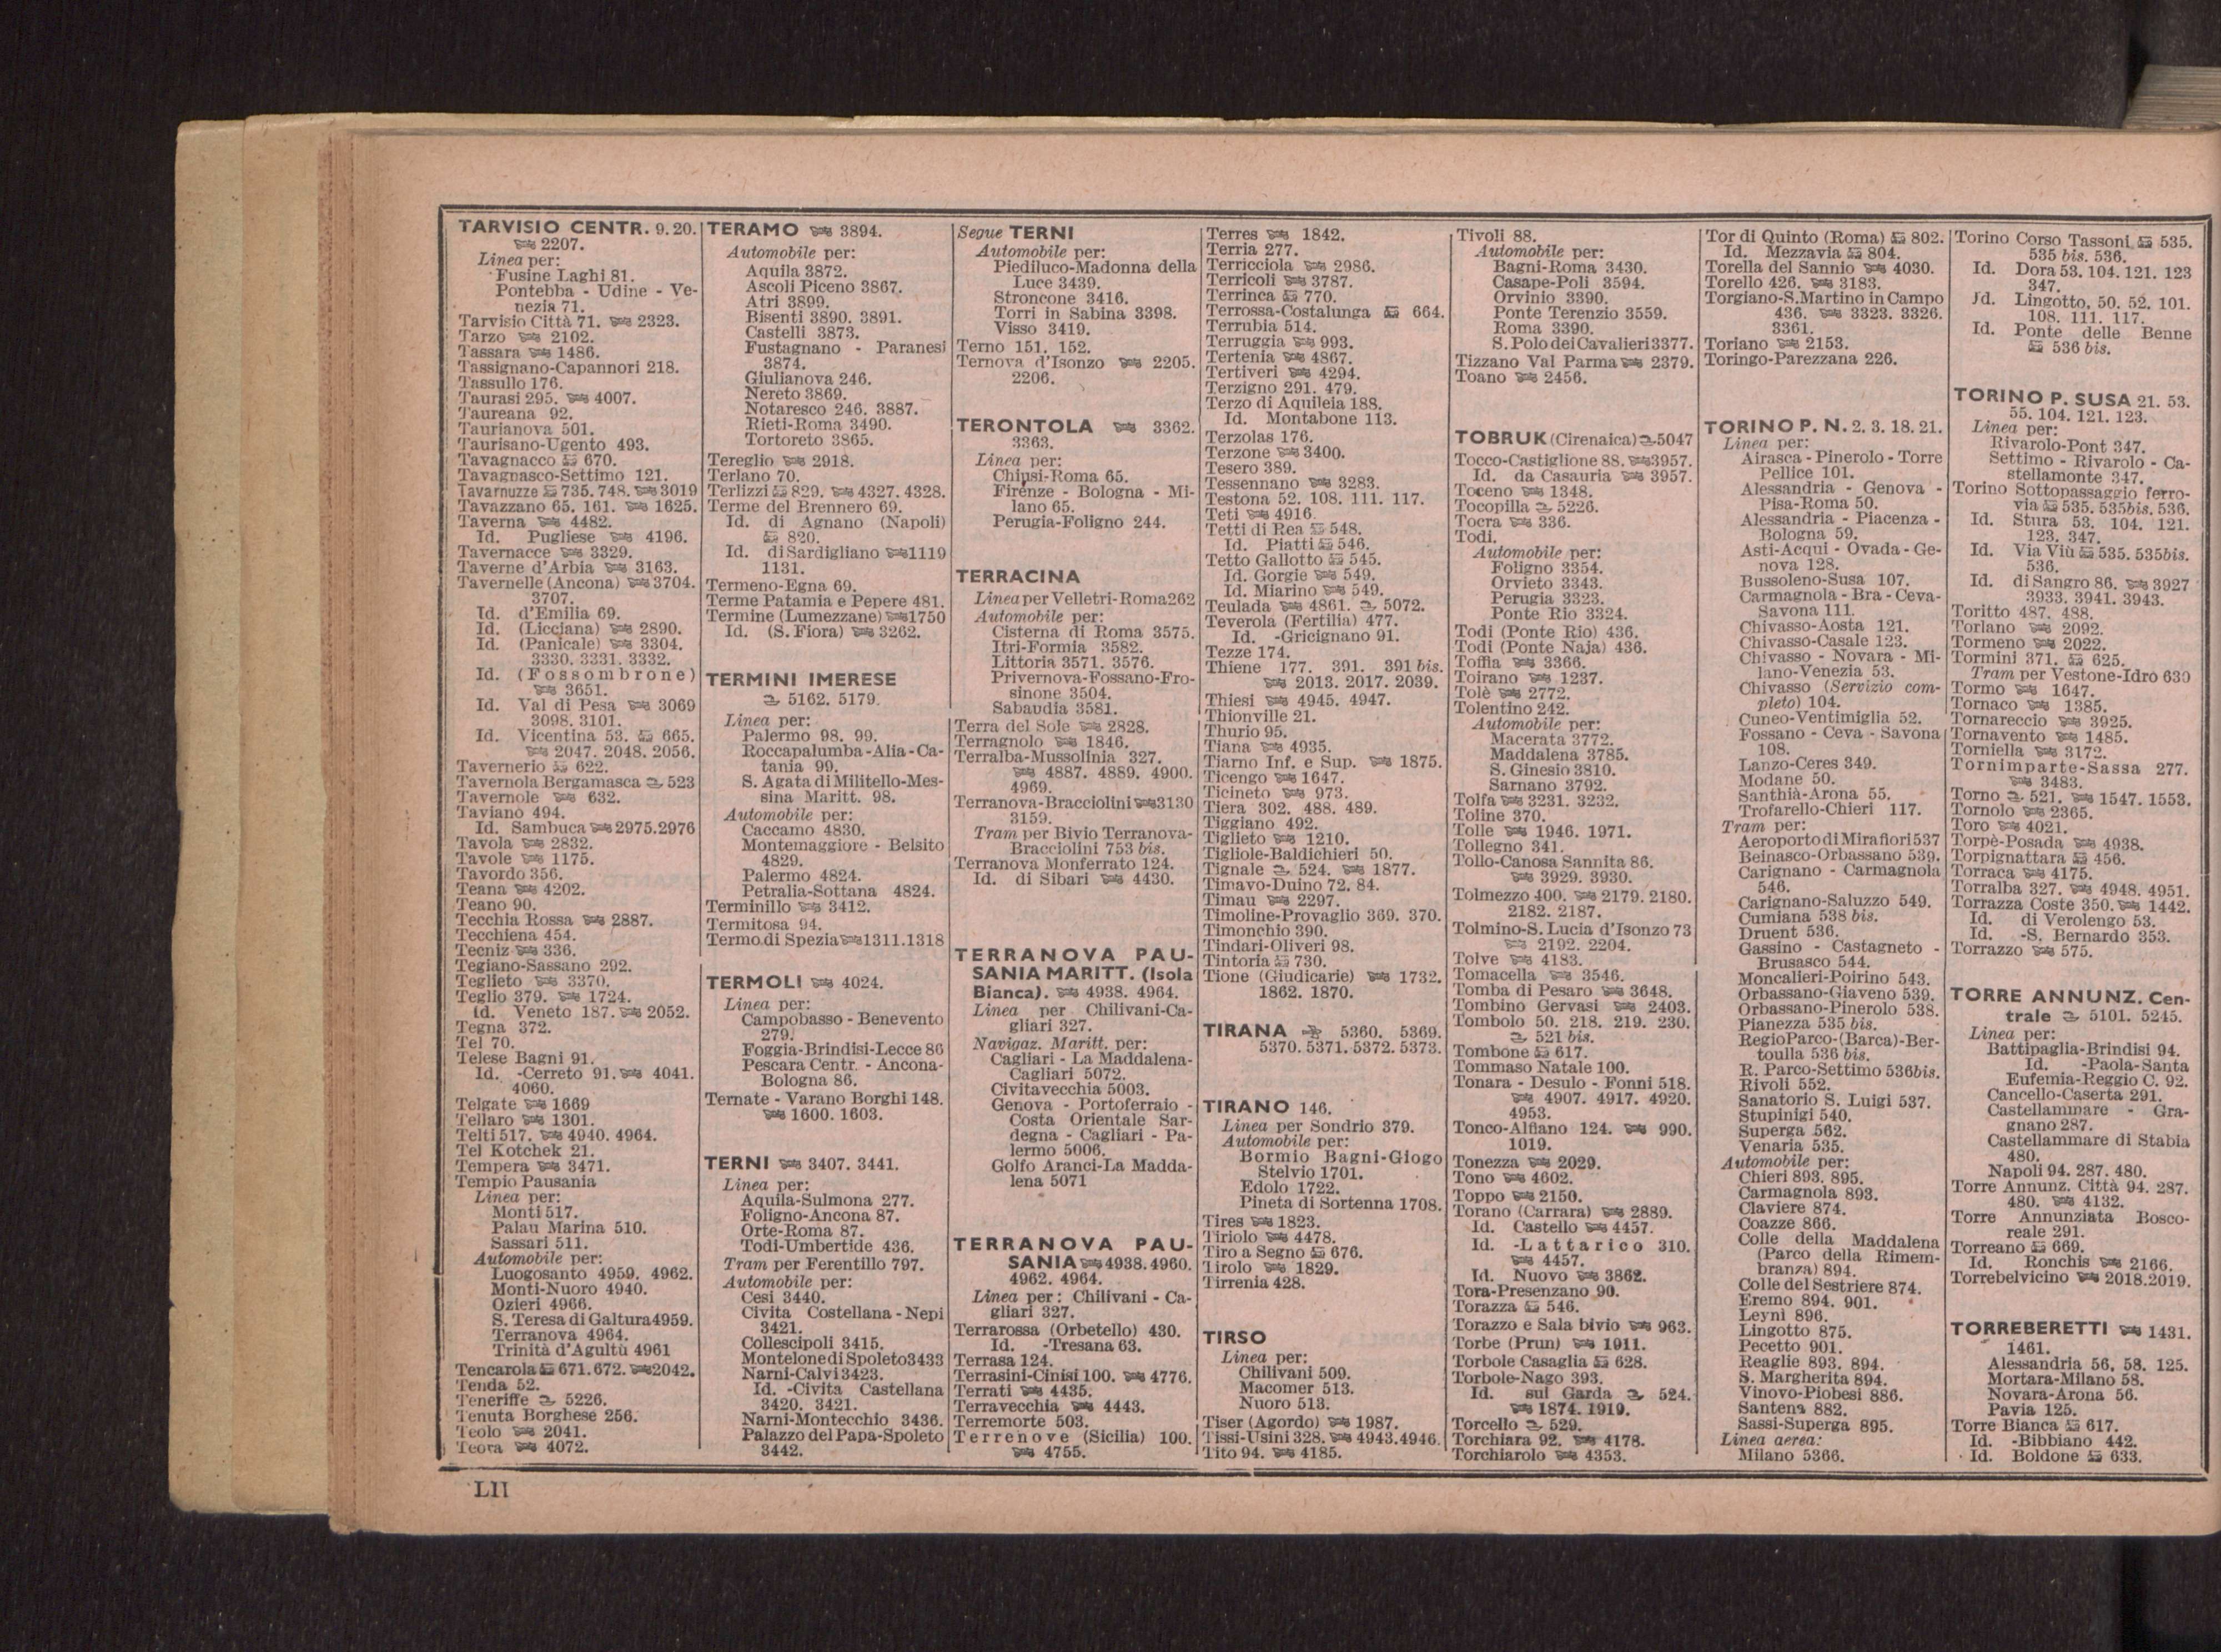 TARVISIO CENTR. 9. 20.
2207.
Linea per:
Fusine Laghi 81.
Pontebba - Udine - Ve-
nezia 71.
Tarvisio Città 71. 2323.
Tarzo 2102.
Tassara 1486.
Tassignano-Capannori 218.
Tassullo 176.
Taurasi 295. 4007.
Taureana 92.
Taurianova 501.
Taurisano-Ugento 493.
Tavagnacco 670.
Tavagnasco-Settimo 121.
Tavarnuzze 735. 748. 3019
Tavazzano 65. 161. 1625.
Taverna 4482.
Id. Pugliese 4196.
Tavernacce 3329.
Taverne d'Arbia 3163.
Tavernelle (Ancona) 3704.
3707.
Id. d'Emilia 69.
Id. (Licciana) 2890.
Id. (Panicale) 3304.
3330. 3331. 3332.
Id. (Fossombrone)
3651.
Id. Val di Pesa 3069
3098. 3101.
Id. Vicentina 53. 665.
2047. 2048. 2056.
Tavernerio 622.
Tavernola Bergamasca 523
Tavernole 632.
Taviano 494.
Id. Sambuca 2975.2976
Tavola 2832.
Tavole 1175.
Tavordo 356.
Teana 4202.
Teano 90.
Tecchia Rossa 2887.
Tecchiena 454.
Tecniz 336.
Tegiano-Sassano 292.
Teglieto 3370.
Teglio 379. 1724.
Id. Veneto 187. 2052.
Tegna 372.
Tel 70.
Telese Bagni 91.
Id. -Cerreto 91. 4041.
4060.
Telgate 1669
Tellaro 1301.
Telti 517. 4940. 4964.
Tel Kotchek 21.
Tempera 3471.
Tempio Pausania
Linea per:
Monti 517.
Palau Marina 510.
Sassari 511.
Automobile per:
Luogosanto 4959. 4962.
Monti-Nuoro 4940.
Ozieri 4966.
S. Teresa di Galtura 4959.
Terranova 4964.
Trinità d'Agultù 4961
Tencarola 671. 672. 2042.
Tenda 52.
Teneriffe 5226.
Tenuta Borghese 256.
Teolo 2041.
Teora 4072.
TERAMO 3894.
Automobile per:
Aquila 3872.
Ascoli Piceno 3867.
Atri 3899.
Bisenti 3890. 3891.
Castelli 3873.
Fustagnano - Paranesi
3874.
Giulianova 246.
Nereto 3869.
Notaresco 246. 3887.
Rieti-Roma 3490.
Tortoreto 3865.
Tereglio 2918.
Terlano 70.
Terlizzi 829. 4327. 4328.
Terme del Brennero 69.
Id. di Agnano (Napoli)
820.
Id. di Sardigliano 1119
1131.
Termeno-Egna 69.
Terme Patamia e Pepere 481.
Termine (Lumezzane) 1750
Id. (S. Fiora) 3262.
TERMINI IMERESE
5162. 5179.
Linea per:
Palermo 98. 99.
Roccapalumba-Alia-Ca-
tania 99.
S. Agata di Militello-Mes-
sina Maritt. 98.
Automobile per:
Caccamo 4830.
Montemaggiore - Belsito
4829.
Palermo 4824.
Petralia-Sottana 4824.
Terminillo 3412.
Termitosa 94.
Termo di Spezia 1311.1318
TERMOLI 4024.
Linea per:
Campobasso - Benevento
279.
Foggia-Brindisi-Lecce 86
Pescara Centr. - Ancona-
Bologna 86.
Ternate - Varano Borghi 148.
1600. 1603.
TERNI 3407. 3441.
Linea per:
Aquila-Sulmona 277.
Foligno-Ancona 87.
Orte-Roma 87.
Todi-Umbertide 436.
Tram per Ferentillo 797.
Automobile per:
Cesi 3440.
Civita Costellana - Nepi
3421.
Collescipoli 3415.
Montelone di Spoleto 3433
Narni-Calvi 3423.
Id. -Civita Castellana
3420. 3421.
Narni-Montecchio 3436.
Palazzo del Papa-Spoleto
3442.
Segue TERNI
Automobile per:
Piediluco-Madonna della
Luce 3439.
Stroncone 3416.
Torri in Sabina 3398.
Visso 3419.
Terno 151. 152.
Ternova d'Isonzo 2205.
2206.
TERONTOLA 3362.
3363.
Linea per:
Chiusi-Roma 65.
Firenze - Bologna - Mi-
lano 65.
Perugia-Foligno 244.
TERRACINA
Linea per Velletri-Roma 262
Automobile per:
Cisterna di Roma 3575.
Itri-Formia 3582.
Littoria 3571. 3576.
Privernova-Fossano-Fro-
sinone 3504.
Sabaudia 3581.
Terra del Sole 2828.
Terragnolo 1846.
Terralba-Mussolinia 327.
4887. 4889. 4900.
4969.
Terranova-Bracciolini 3130
3159.
Tram per Bivio Terranova-
Bracciolini 753 bis.
Terranova Monferrato 124.
Id. di Sibari 4430.
TERRANOVA PAU-
SANIA MARITT. (Isola
Bianca). 4938. 4964.
Linea per Chilivani-Ca-
gliari 327.
Navigaz. Maritt. per:
Cagliari - La Maddalena-
Cagliari 5072.
Civitavecchia 5003.
Genova - Portoferraio -
Costa Orientale Sar-
degna - Cagliari - Pa-
lermo 5006.
Golfo Aranci-La Madda-
lena 5071
TERRANOVA PAU-
SANIA 4938.4960.
4962. 4964.
Linea per: Chilivani - Ca-
gliari 327.
Terrarossa (Orbetello) 430.
Id. -Tresana 63.
Terrasa 124.
Terrasini-Cinisi 100. 4776.
Terrati 4435.
Terravecchia 4443.
Terremorte 503.
Terrenove (Sicilia) 100.
4755.
Terres 1842.
Terria 277.
Terricciola 2986.
Terricoli 3787.
Terrinca 770.
Terrossa-Costalunga 664.
Terrubia 514.
Terruggia 993.
Tertenia 4867.
Tertiveri 4294.
Terzigno 291. 479.
Terzo di Aquileia 188.
Id. Montabone 113.
Terzolas 176.
Terzone 3400.
Tesero 389.
Tessennano 3283.
Testona 52. 108. 111. 117.
Teti 4916.
Tetti di Rea 548.
Id. Piatti 546.
Tetto Gallotto 545.
Id. Gorgie 549.
Id. Miarino 549.
Teulada 4861. 5072.
Teverola (Fertilia) 477.
Id. -Gricignano 91.
Tezze 174.
Thiene 177. 391. 391 bis.
2013. 2017. 2039.
Thiesi 4945. 4947.
Thionville 21.
Thurio 95.
Tiana 4935.
Tiarno Inf. e Sup. 1875.
Ticengo 1647.
Ticineto 973.
Tiera 302. 488. 489.
Tiggiano 492.
Tiglieto 1210.
Tigliole-Baldichieri 50.
Tignale 524. 1877.
Timavo-Duino 72. 84.
Timau 2297.
Timoline-Provaglio 369. 370.
Timonchio 390.
Tindari-Oliveri 98.
Tintoria 730.
Tione (Giudicarie) 1732.
1862. 1870.
TIRANA 5360. 5369.
5370. 5371. 5372. 5373.
TIRANO 146.
Linea per Sondrio 379.
Automobile per:
Bormio Bagni-Giogo
Stelvio 1701.
Edolo 1722.
Pineta di Sortenna 1708.
Tires 1823.
Tiriolo 4478.
Tiro a Segno 676.
Tirolo 1829.
Tirrenia 428.
TIRSO
Linea per:
Chilivani 509.
Macomer 513.
Nuoro 513.
Tiser (Agordo) 1987.
Tissi-Usini 328. 4943.4946.
Tito 94. 4185.
Tivoli 88.
Automobile per:
Bagni-Roma 3430.
Casape-Poli 3594.
Orvinio 3390.
Ponte Terenzio 3559.
Roma 3390.
S. Polo dei Cavalieri 3377.
Tizzano Val Parma 2379.
Toano 2456.
TOBRUK (Cirenaica) 5047
Tocco-Castiglione 88. 3957.
Id. da Casauria 3957.
Toceno 1348.
Tocopilla 5226.
Tocra 336.
Todi.
Automobile per:
Foligno 3354.
Orvieto 3343.
Perugia 3323.
Ponte Rio 3324.
Todi (Ponte Rio) 436.
Todi (Ponte Naja) 436.
Toffia 3366.
Toirano 1237.
Tolè 2772.
Tolentino 242.
Automobile per:
Macerata 3772.
Maddalena 3785.
S. Ginesio 3810.
Sarnano 3792.
Tolfa 3231. 3232.
Toline 370.
Tolle 1946. 1971.
Tollegno 341.
Tollo-Canosa Sannita 86.
3929. 3930.
Tolmezzo 400. 2179. 2180.
2182. 2187.
Tolmino-S. Lucia d'Isonzo 73
2192. 2204.
Tolve 4183.
Tomacella 3546.
Tomba di Pesaro 3648.
Tombino Gervasi 2403.
Tombolo 50. 218. 219. 230.
521 bis.
Tombone 617.
Tommaso Natale 100.
Tonara - Desulo - Fonni 518.
4907. 4917. 4920.
4953.
Tonco-Alfiano 124. 990.
1019.
Tonezza 2029.
Tono 4602.
Toppo 2150.
Torano (Carrara) 2889.
Id. Castello 4457.
Id. -Lattarico 310.
4457.
Id. Nuovo 3862.
Tora-Presenzano 90.
Torazza 546.
Torazzo e Sala bivio 963.
Torbe (Prun) 1911.
Torbole Casaglia 628.
Torbole-Nago 393.
Id. sul Garda 524.
1874. 1919.
Torcello 529.
Torchiara 92. 4178.
Torchiarolo 4353.
Tor di Quinto (Roma) 802.
Id. Mezzavia 804.
Torella del Sannio 4030.
Torello 426. 3183.
Torgiano-S.Martino in Campo
436. 3323. 3326.
3361.
Toriano 2153.
Toringo-Parezzana 226.
TORINO P. N. 2. 3. 18. 21.
Linea per:
Airasca - Pinerolo - Torre
Pellice 101.
Alessandria - Genova -
Pisa-Roma 50.
Alessandria - Piacenza -
Bologna 59.
Asti-Acqui - Ovada - Ge-
nova 128.
Bussoleno-Susa 107.
Carmagnola - Bra - Ceva-
Savona 111.
Chivasso-Aosta 121.
Chivasso-Casale 123.
Chivasso - Novara - Mi-
lano-Venezia 53.
Chivasso (Servizio com-
pleto) 104.
Cuneo-Ventimiglia 52.
Fossano - Ceva - Savona
108.
Lanzo-Ceres 349.
Modane 50.
Santhià-Arona 55.
Trofarello-Chieri 117.
Tram per:
Aeroporto di Mirafiori 537
Beinasco-Orbassano 539.
Carignano - Carmagnola
546.
Carignano-Saluzzo 549.
Cumiana 538 bis.
Druent 536.
Gassino - Castagneto -
Brusasco 544.
Moncalieri-Poirino 543.
Orbassano-Giaveno 539.
Orbassano-Pinerolo 538.
Pianezza 535 bis.
Regio Parco-(Barca)-Ber-
toulla 536 bis.
R. Parco-Settimo 536bis.
Rivoli 552.
Sanatorio S. Luigi 537.
Stupinigi 540.
Superga 562.
Venaria 535.
Automobile per:
Chieri 893. 895.
Carmagnola 893.
Claviere 874.
Coazze 866.
Colle della Maddalena
(Parco della Rimem-
branza) 894.
Colle del Sestriere 874.
Eremo 894. 901.
Leyni 896.
Lingotto 875.
Pecetto 901.
Reaglie 893. 894.
S. Margherita 894.
Vinovo-Piobesi 886.
Santena 882.
Sassi-Superga 895.
Linea aerea:
Milano 5366.
Torino Corso Tassoni 535.
535 bis. 536.
Id. Dora 53. 104. 121. 123
347.
Id. Lingotto. 50. 52. 101.
108. 111. 117.
Id. Ponte delle Benne
536 bis.
TORINO P. SUSA 21. 53.
55. 104. 121. 123.
Linea per:
Rivarolo-Pont 347.
Settimo - Rivarolo - Ca-
stellamonte 347.
Torino Sottopassaggio ferro-
via 535. 535bis. 536.
Id. Stura 53. 104. 121.
123. 347.
Id. Via Viù 535. 535bis.
536.
Id. di Sangro 86. 3927
3933. 3941. 3943.
Toritto 487. 488.
Torlano 2092.
Tormeno 2022.
Tormini 371. 625.
Tram per Vestone-Idro 630
Tormo 1647.
Tornaco 1385.
Tornareccio 3925.
Tornavento 1485.
Torniella 3172.
Tornimparte-Sassa 277.
3483.
Torno 521. 1547. 1553.
Tornolo 2365.
Toro 4021.
Torpè-Posada 4938.
Torpignattara 456.
Torraca 4175.
Torralba 327. 4948. 4951.
Torrazza Coste 350. 1442.
Id. di Verolengo 53.
Id. -S. Bernardo 353.
Torrazzo 575.
TORRE ANNUNZ. Cen-
trale 5101. 5245.
Linea per:
Battipaglia-Brindisi 94.
Id. -Paola-Santa
Eufemia-Reggio C. 92.
Cancello-Caserta 291.
Castellammare - Gra-
gnano 287.
Castellammare di Stabia
480.
Napoli 94. 287. 480.
Torre Annunz. Città 94. 287.
480. 4132.
Torre Annunziata Bosco-
reale 291.
Torreano 669.
Id. Ronchis 2166.
Torrebelvicino 2018.2019.
TORREBERETTI 1431.
1461.
Alessandria 56. 58. 125.
Mortara-Milano 58.
Novara-Arona 56.
Pavia 125.
Torre Bianca 617.
Id. -Bibbiano 442.
Id. Boldone 633.
LII